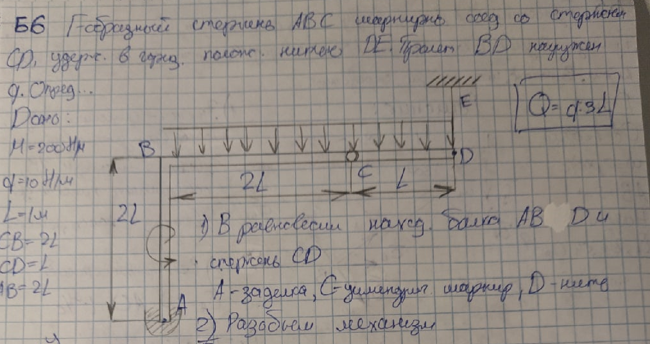 Б6 Г-образный стержень ABC шарнирно соед со стержнем
CD, удерж. в гориз. полож. нитью DE. Пролет BD нагружен
q. Опред...
Дано:
M=200Нм
q=10Н/м
L=1м
CB=2L
CD=L
AB=2L
Q=q·3L
E
B
C
D
2L
L
2L
A
1) В равновесии наход. балка AB D и
стержень CD
A-заделка, C-цилиндрич. шарнир, D-нить
2) Разобьем механизм